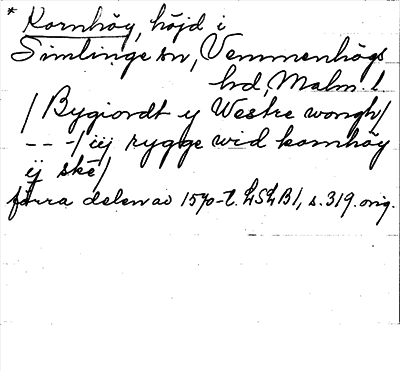 * Kornhöy, höjd i
Simlinge sn, Vemmenhögs
hd, Malm. l
/Bygiordt y Westre wongh/
- - -/ iij rygge wid kornhöy
ij skē/
förra delen av 1570-t. LSLB1, s. 319. orig.